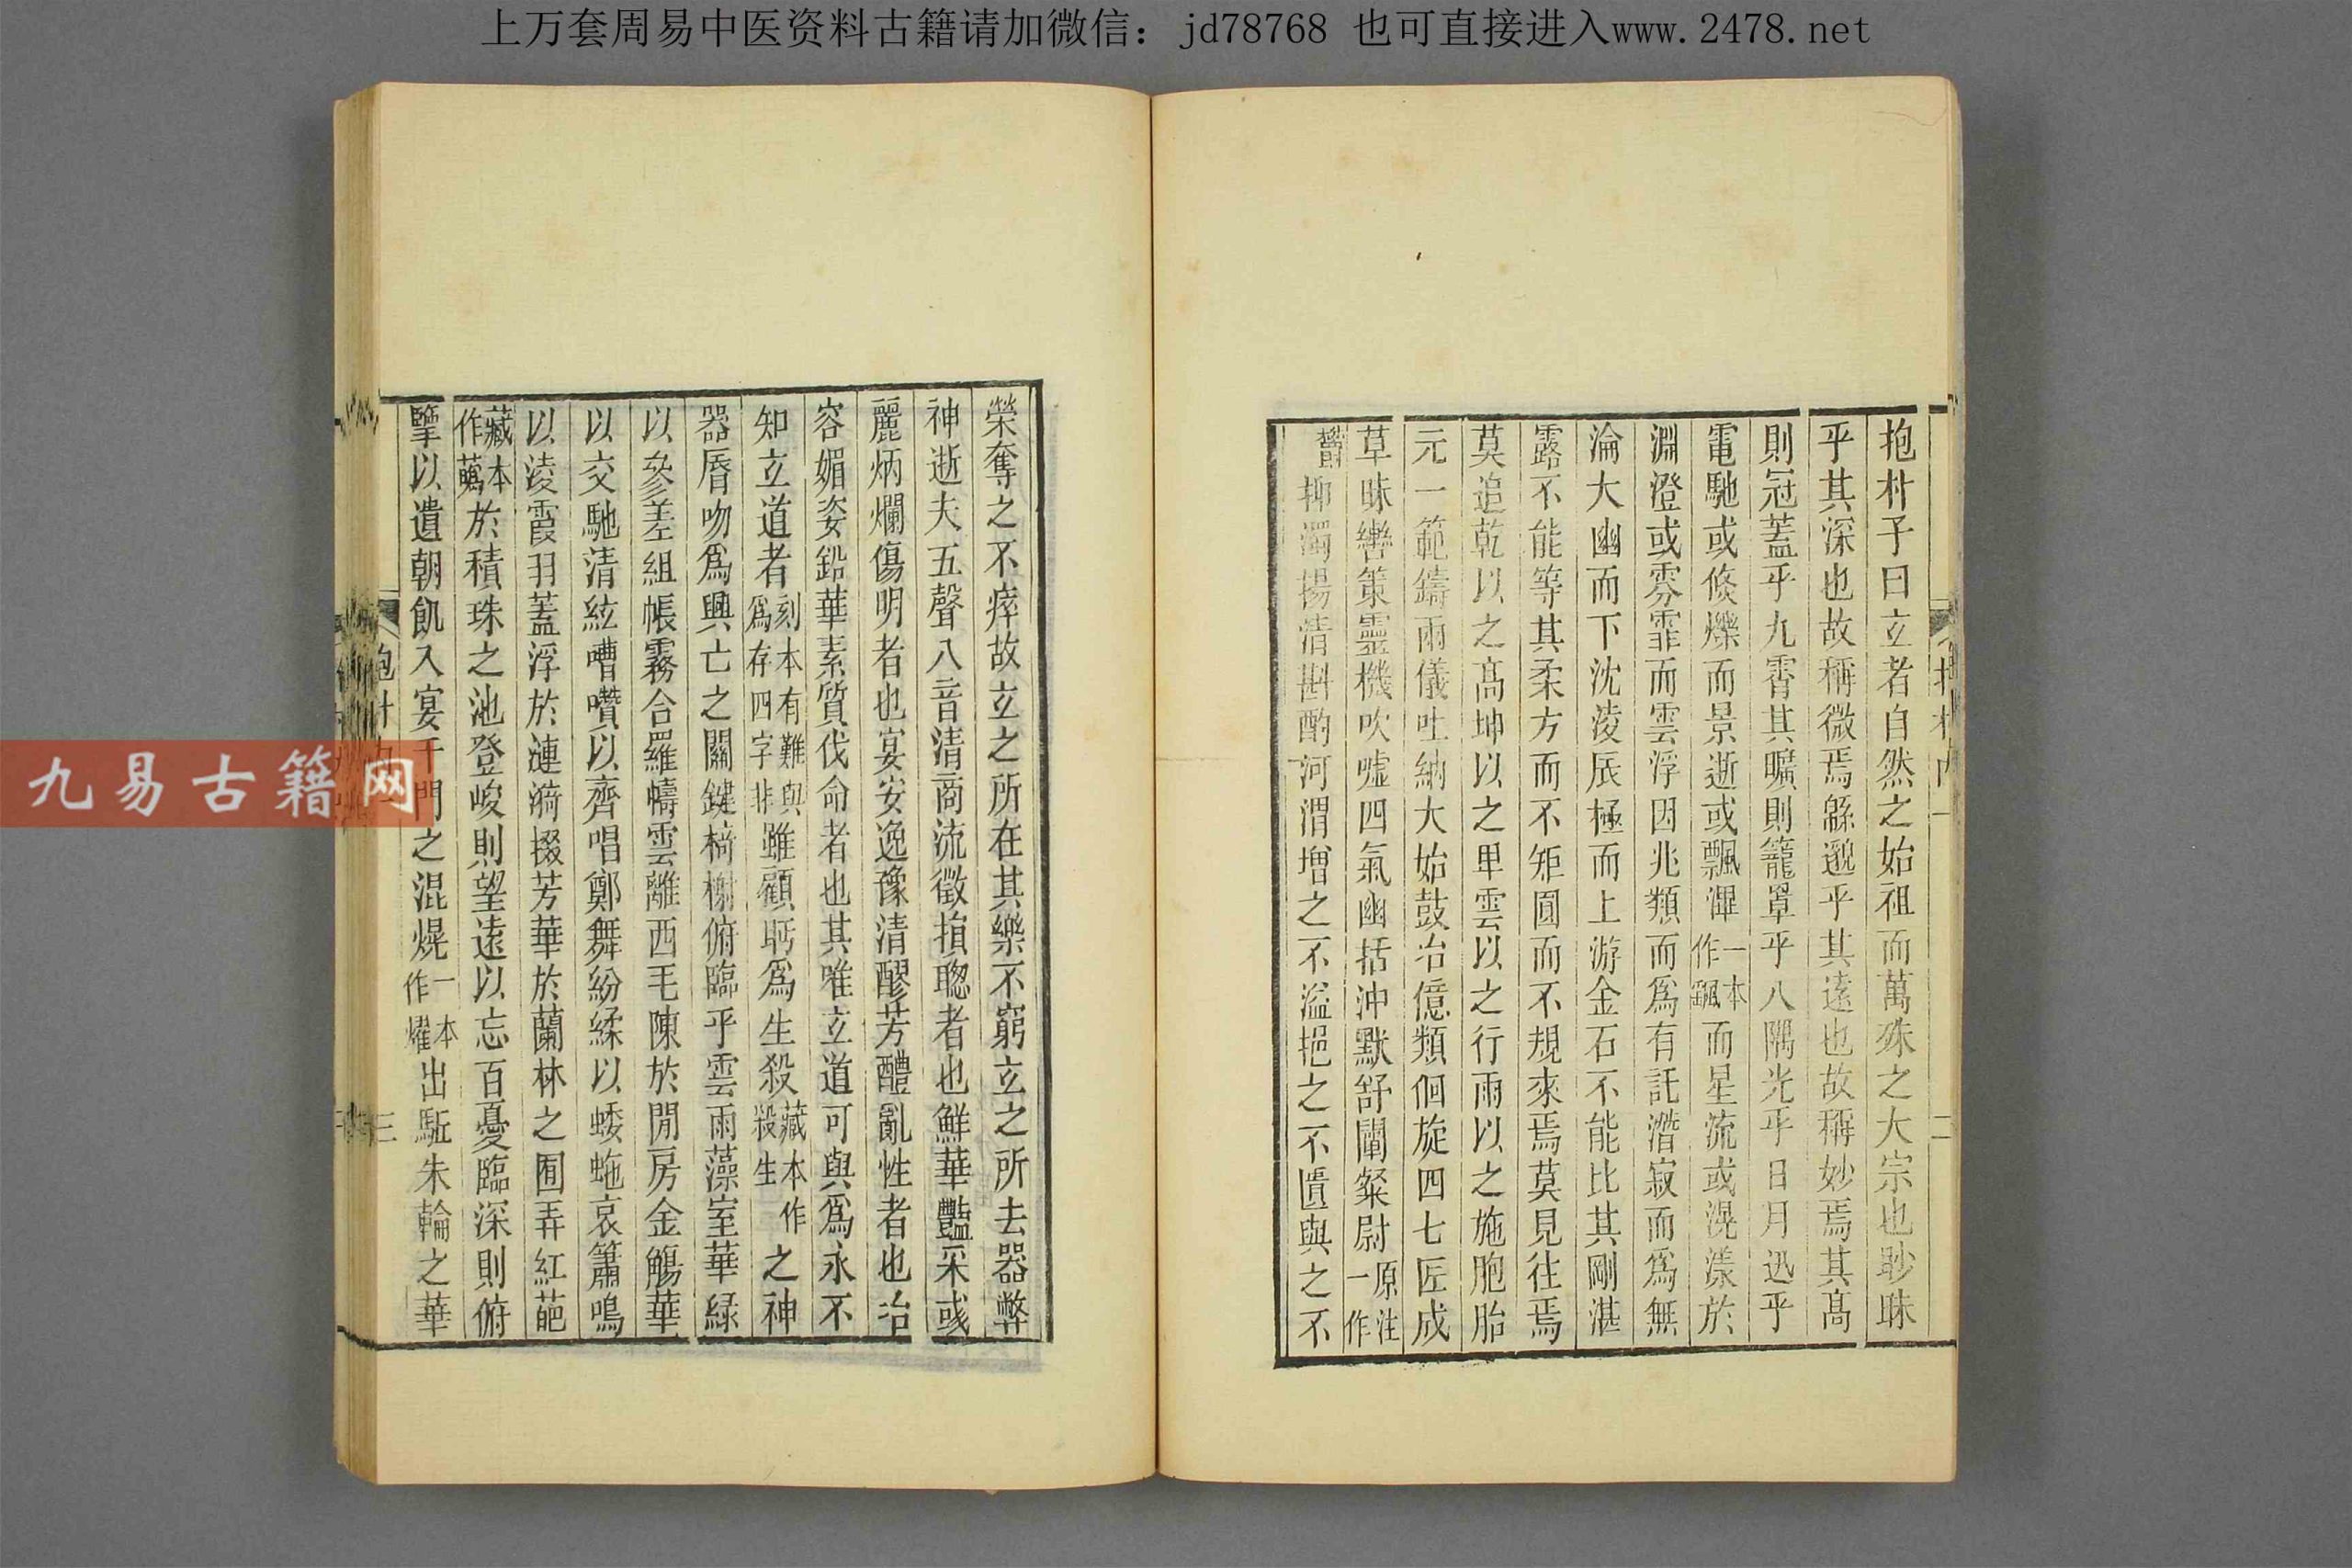 上万套周易中医资料古籍请加微信：jd78768 也可直接进入www.2478.net
抱朴子曰立者自然之始祖而萬殊之大宗也眇昧
乎其深也故稱微焉緜邈乎其遠也故稱妙焉其髙
則冠蓋乎九霄其曠則籠罩乎八隅光乎日月迅乎
電馳或倏爍而景逝或飄滭一本作颿而星流或滉漾於
淵澄或雰霏而雲浮因兆類而爲有託潛寂而爲無
淪大幽而下沈淩辰極而上游金石不能比其剛湛
露不能等其柔方而不矩圓而不規來焉莫見往焉
莫追乾以之髙坤以之卑雲以之行雨以之施胞胎
元一範鑄兩儀吐納大始鼓冶億類佪旋四七匠成
草昧轡策靈機吹噓四氣幽括沖默舒闡粲尉原注一作
鬱抑濁揚清斟酌河渭增之不溢挹之不匱與之不
榮奪之不瘁故立之所在其樂不窮立之所去器弊
神逝夫五聲八音清商流徵損聰者也鮮華豔采彧
麗炳爛傷明者也宴安逸豫清醪芳醴亂性者也冶
容媚姿鉛華素質伐命者也其唯立道可與爲永不
知立道者刻本有難與爲存四字非雖顧眄爲生殺藏本作殺生之神
器脣吻爲興亡之關鍵榱榭俯臨乎雲雨藻室華綠
以參差組帳霧合羅幬雲離西毛陳於閒房金觴華
以交馳清絃嘈囋以齊唱鄭舞紛緌以蜲蛇哀簫鳴
以淩霞羽蓋浮於漣漪掇芳華於蘭林之囿弄紅葩
藏本作蘤於積珠之池登峻則望遠以忘百憂臨深則俯
擥以遺朝飢入宴千門之混熀一本作爥出駈朱輪之華
抱朴
三
二
九易古籍网